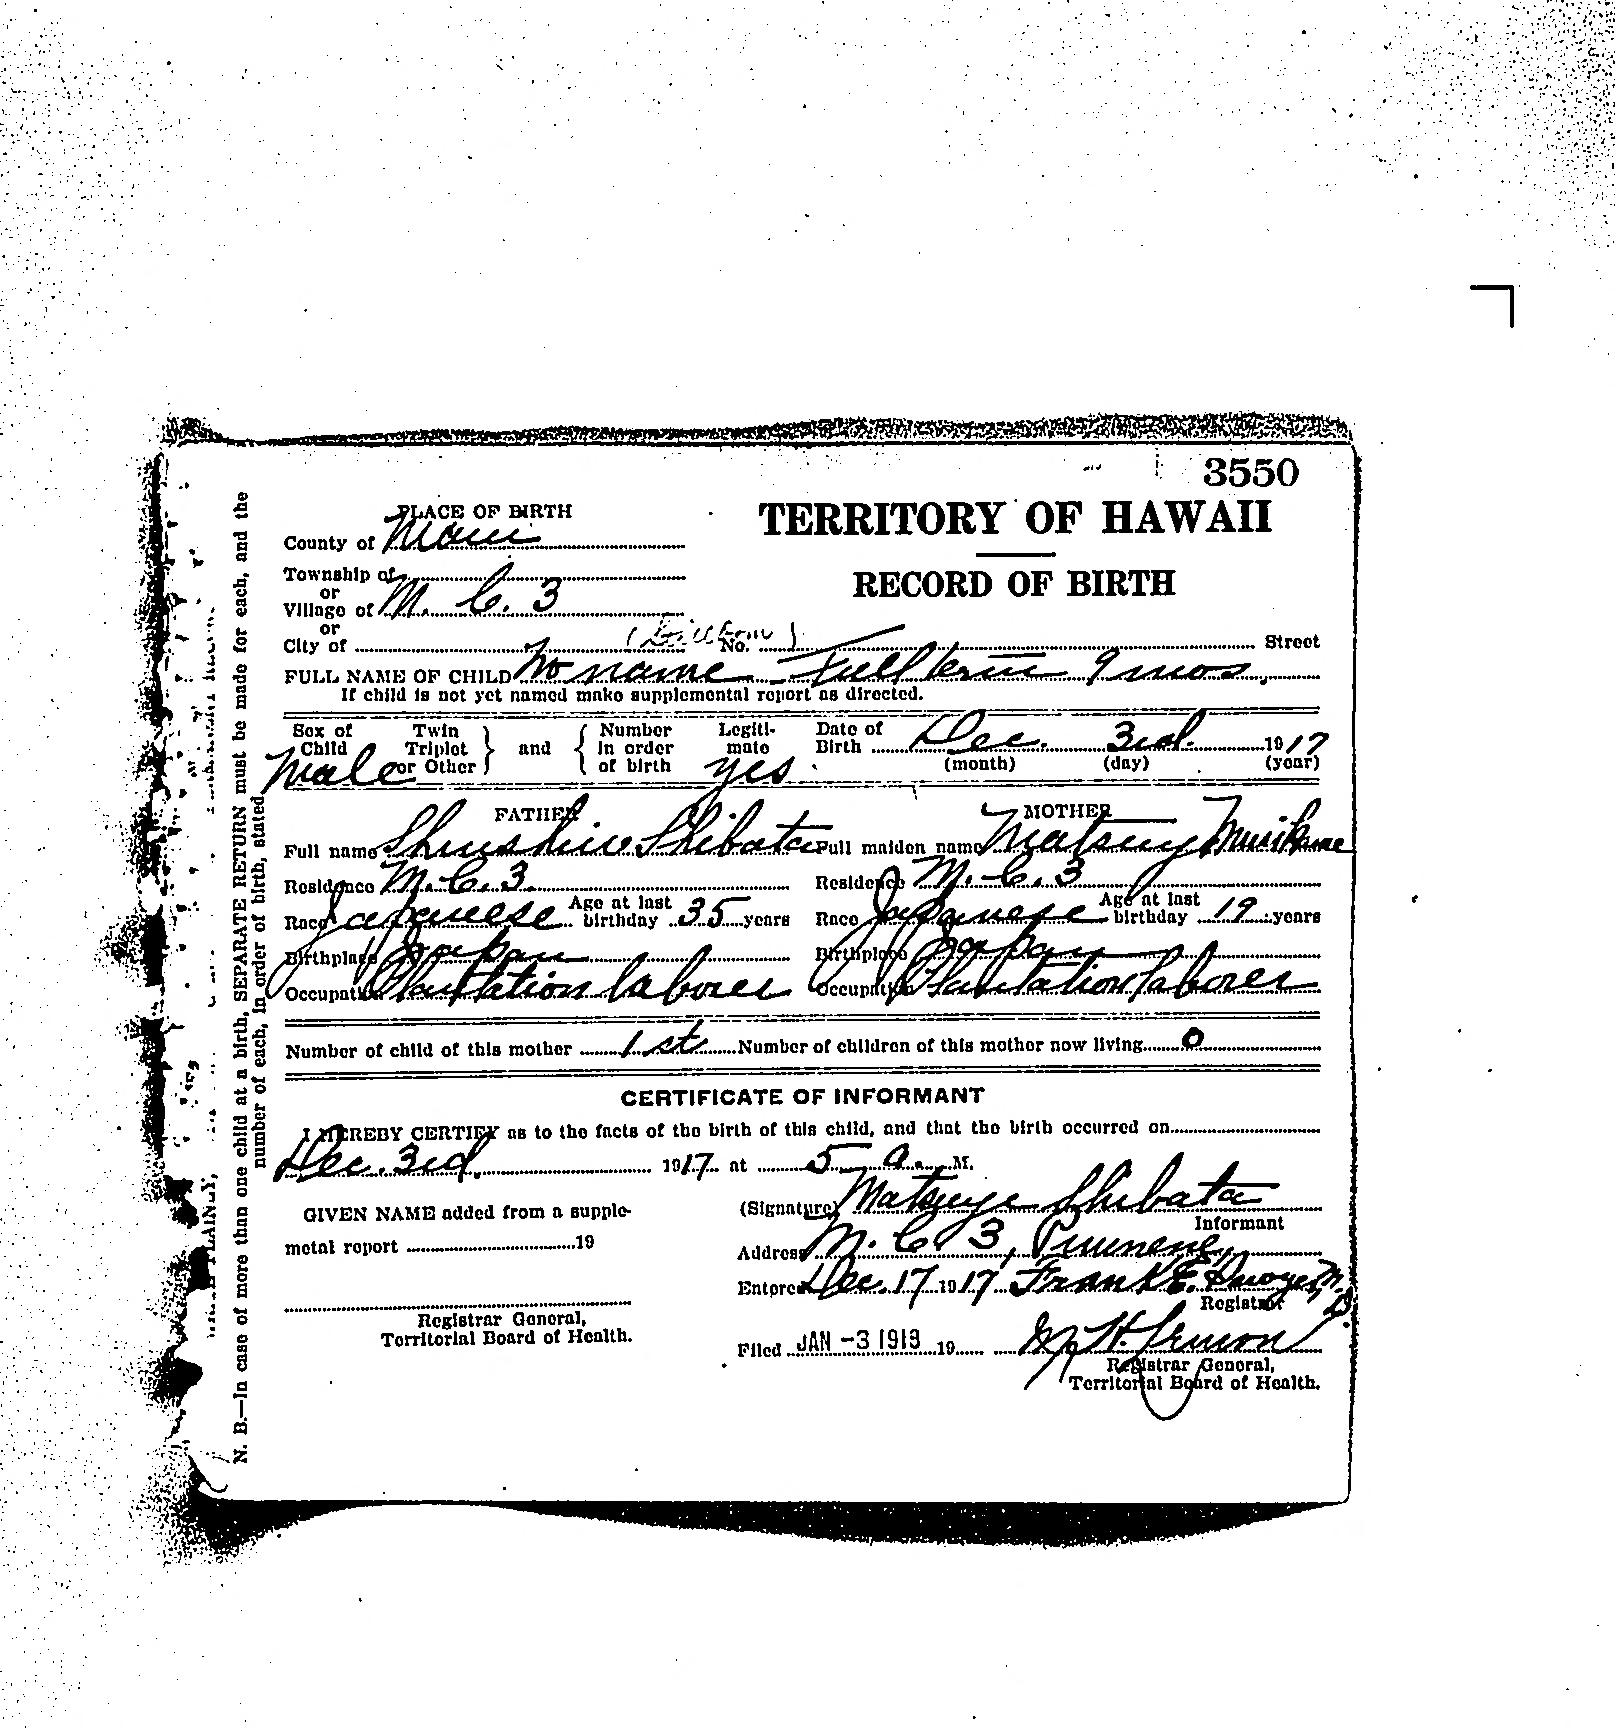 3550
PLACE OF BIRTH
TERRITORY OF HAWAII
County of Maui
Township of
RECORD OF BIRTH
or
Village of M. C. 3
or
City of No. Street
FULL NAME OF CHILD No name Full term 9 mos.
If child is not yet named make supplemental report as directed.
Sex of Child Male
Twin Triplet or Other } and { Number in order of birth
Legiti-mate yes
Date of Birth Dec. 3rd. 1917
(month) (day) (year)
FATHER
Full name Shibata
Residence M. C. 3.
Race Japanese Age at last birthday 35 years
Birthplace Japan
Occupation Plantation laborer
MOTHER
Full maiden name
Residence M. C. 3
Race Japanese Age at last birthday 19 years
Birthplace Japan
Occupation Plantation laborer
Number of child of this mother 1st Number of children of this mother now living 0
CERTIFICATE OF INFORMANT
I HEREBY CERTIFY as to the facts of the birth of this child, and that the birth occurred on
Dec. 3rd. 1917 at 5 a. M.
(Signature) Shibata
Informant
GIVEN NAME added from a supple-
metal report 19
Address M. C. 3, Puunene,
Entered Dec. 17 1917 Frank E. M. D.
Registrar
Registrar General,
Territorial Board of Health.
Filed JAN -3 1918 19
Registrar General,
Territorial Board of Health.
N. B.—In case of more than one child at a birth, SEPARATE RETURN must be made for each, and the
number of each, in order of birth, stated
PLAINLY,